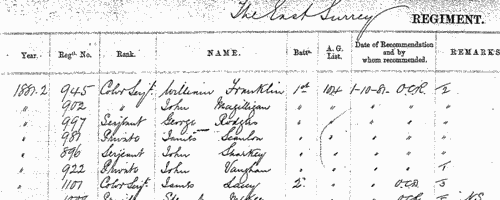 The East Surrey REGIMENT.
Year. Regtl. No. Rank. NAME. Battn. A. G. List. Date of Recommendation and by whom recommended. REMARKS
1881-2 945 Color Serjt. William Franklin 1st 104 1-10-81 O.C.R.
" 902 " John Magilligan " " " "
" 997 Serjeant George Rodgers " " " "
" 987 Private James Scanlon " " "
" 896 Serjeant John Sharkey " " "
" 922 Private John Vaughan " " "
" 1101 Color Serjt. James Lacey 2 " " O.C.R.